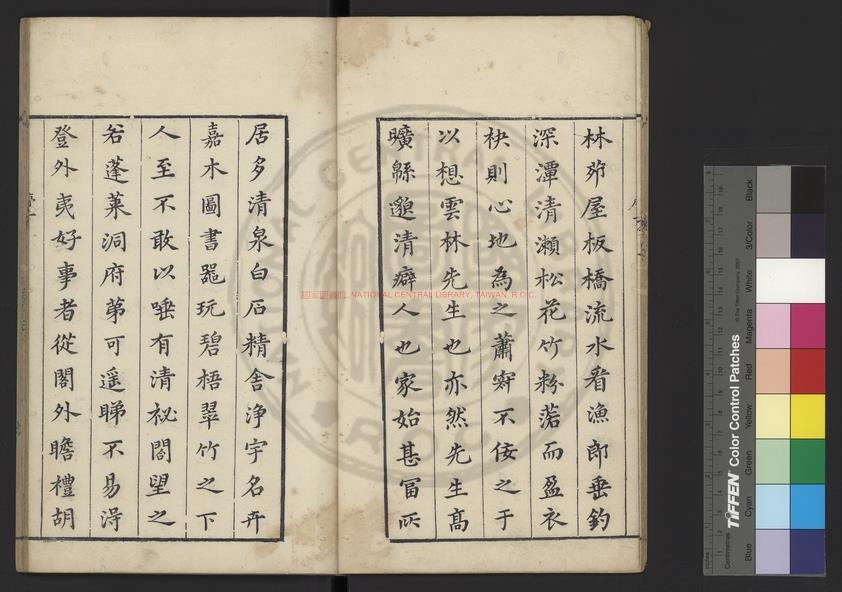 林茆屋板橋流水看漁郎垂釣
深潭清瀨松花竹粉落而盈衣
袂則心地為之蕭不佞之于
以想雲林先生也亦然先生髙
曠緜邈清癖人也家始甚冨所
居多清泉白石精舍淨宇名卉
嘉木圖書噐玩碧梧翠竹之下
人至不敢以唾有清祕閣望之
若蓬萊洞府苐可遥睇不易淂
登外夷好事者從閣外瞻禮胡
NATIONAL CENTRAL LIBRARY, TAIWAN, R.O.C.
TIFFEN Color Control Patches
© The Tiffen Company, 2007
Blue Cyan Green Yellow Red Magenta White 3/Color Black